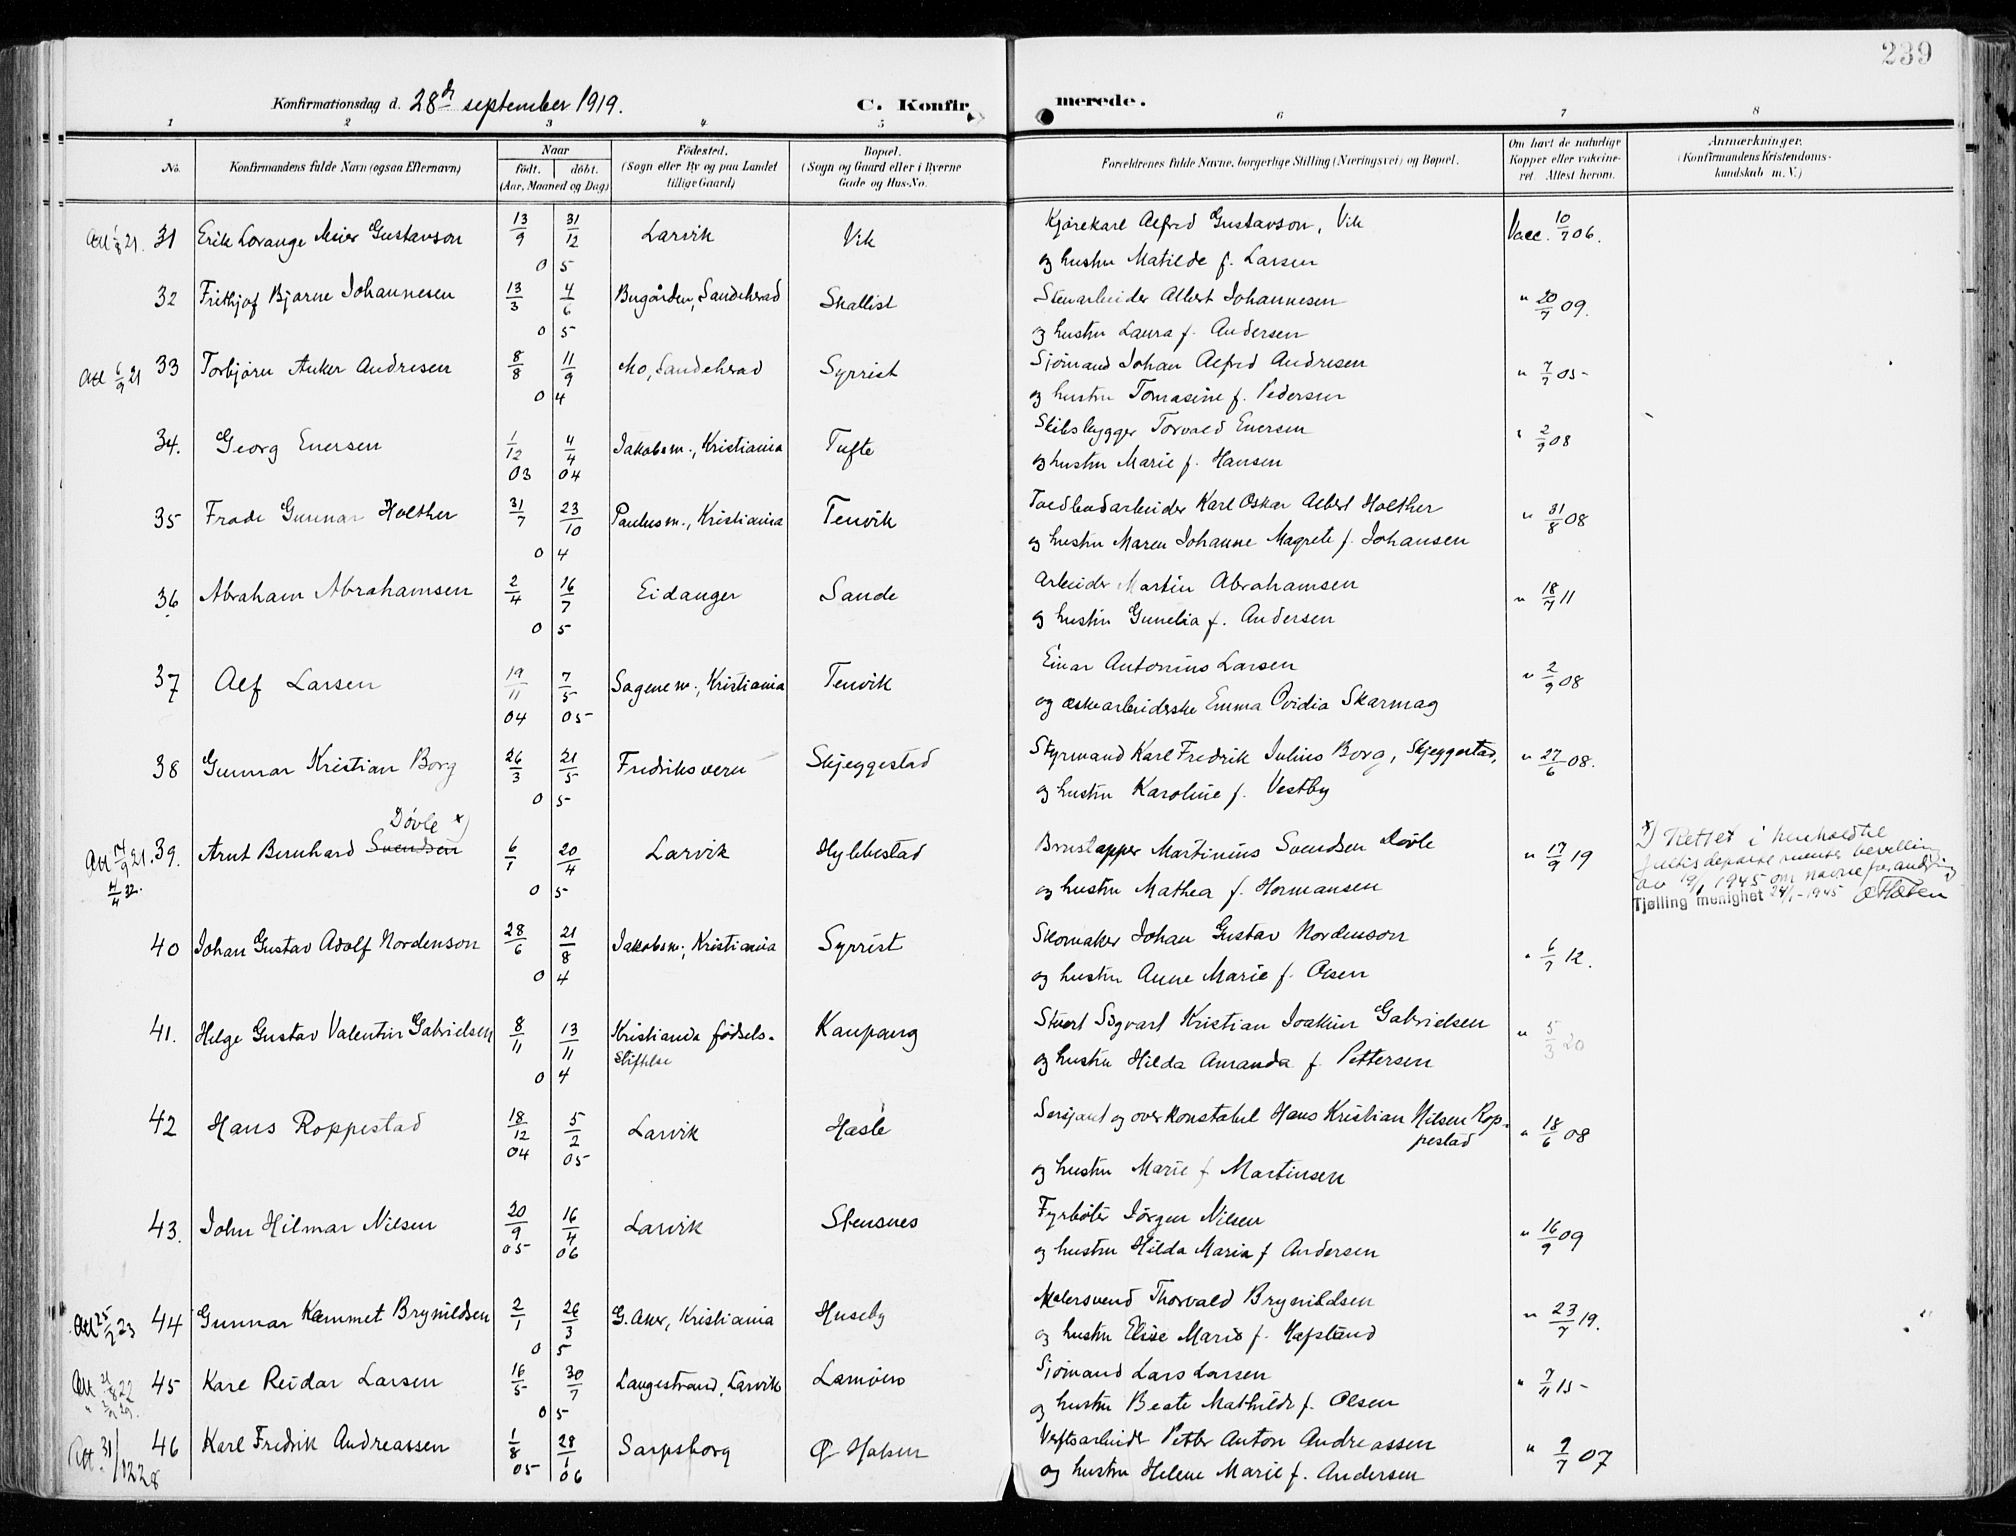 239
Konfirmationsdag d. 28de september 1919.
C. Konfirmerede.
1 2 3 4 5 6 7 8
No. Konfirmandens fulde Navn (ogsaa Efternavn) Naar født. døbt. (Aar, Maaned og Dag) Fødested. (Sogn eller By og paa Landet tillige Gaard) Bopæl. (Sogn og Gaard eller i Byerne Gade og Hus-No. Forældrenes fulde Navne, borgerlige Stilling (Næringsvei) og Bopæl. Om havt de naturlige Kopper eller vakcineret. Attest herom. Anmærkninger. (Konfirmandens Kristendomskundskab m. V.)
31 Erik Lorange Meier Gustavson 13/9 31/12 Larvik Vik Kjørekarl Alfred Gustavson, Vik Vacc. 10/7 06.
0 5 og hustru Matilde f. Larsen
32 Frithjof Bjarne Johannesen 13/3 4/6 Bugården, Sandeherad Skallist Stenarbeider Albert Johannesen " 20/7 09.
0 5 og hustru Laura f. Andersen
Att 6/9 21 33 Torbjørn Anker Andresen 8/8 11/9 Mo, Sandeherad Syrrist Sjømand Johan Alfred Andresen " 7/7 05
0 4 og hustru Tomasine f. Pedersen
34. Georg Enersen 1/12 4/4 Jakobsm., Kristiania Tufte Skibsbygger Torvald Enersen " 2/9 08
03 04 og hustru Marie f. Hansen
35 Frode Gunnar Holther 31/7 23/10 Paulusm., Kristiania Tenvik Toldbodarbeider Karl Oskar Albert Holther " 31/8 08
0 4 og hustru Maren Johanne Magrete f. Johansen
36 Abraham Abrahamsen 2/4 16/7 Eidanger Sande Arbeider Martin Abrahamsen " 18/7 11
0 5 og hustru Gunelia f. Andersen
37 Alf Larsen 19/11 7/5 Sagene m., Kristiania Tenvik Einar Antonius Larsen " 2/9 08
04 05 og æskearbeiderske Emma Ovidia Skarmag
38 Gunnar Kristian Borg 26/3 21/5 Fredriksvern Skjeggestad Styrmand Karl Fredrik Julius Borg, Skjeggestad, " 27/6 08.
0 5 og hustru Karoline f. Vestby
Døvle x)
Att 14/9 21. 39. Arnt Bernhard Svendsen 6/1 20/4 Larvik Hybbestad Brustapper Martinius Svendsen Døvle " 17/9 19
4/4 32. 0 5 og hustru Mathea f. Hermansen
x) Rettet i henhold til
Justisdepartementets bevilling
av 19/1 1945 om navneforandring
Tjølling menighet 24/1-1945
40 Johan Gustav Adolf Nordenson 28/6 21/8 Jakobsm., Kristiania Syrrist Skomaker Johan Gustav Nordenson " 6/7 12.
0 4 og hustru Anne Marie f. Olsen
41. Helge Gustav Valentin Gabrielsen 8/11 13/11 Kristiania fødsels- Kaupang Stuert Sigvart Kristian Joakim Gabrielsen " 5/3 20
stiftelse
0 4 og hustru Hilda Amanda f. Pettersen
42 Hans Roppestad 18/12 5/2 Larvik Hasle Sersjant og overkonstabel Hans Kristian Nilsen Rop- " 18/6 08
pestad
04 05 og hustru Marie f Martinsen
43. John Hilmar Nilsen 20/9 16/4 Larvik Stensnes Fyrbøter Jørgen Nilsen " 16/9 09
05 06 og hustru Hilda Maria f Andersen
Att 25/2 23 44 Gunnar Kammet Brynildsen 2/1 26/3 G. Aker, Kristiania Huseby Malersvend Thorvald Brynildsen " 23/7 19.
0 5 og hustru Elise Marie f. Hafstand
45 Karl Reidar Larsen 16/5 30/7 Langestrand, Larvik Lamøen Sjømand Lars Larsen " 7/11 15
0 5 og hustru Beate Mathilde f. Olsen
Att 31/12 28 46 Karl Fredrik Andreassen 1/8 28/1 Sarpsborg Ø Halsen Verftsarbeider Petter Anton Andreassen " 9/7 07
05 06 og hustru Helene Marie f. Andersen